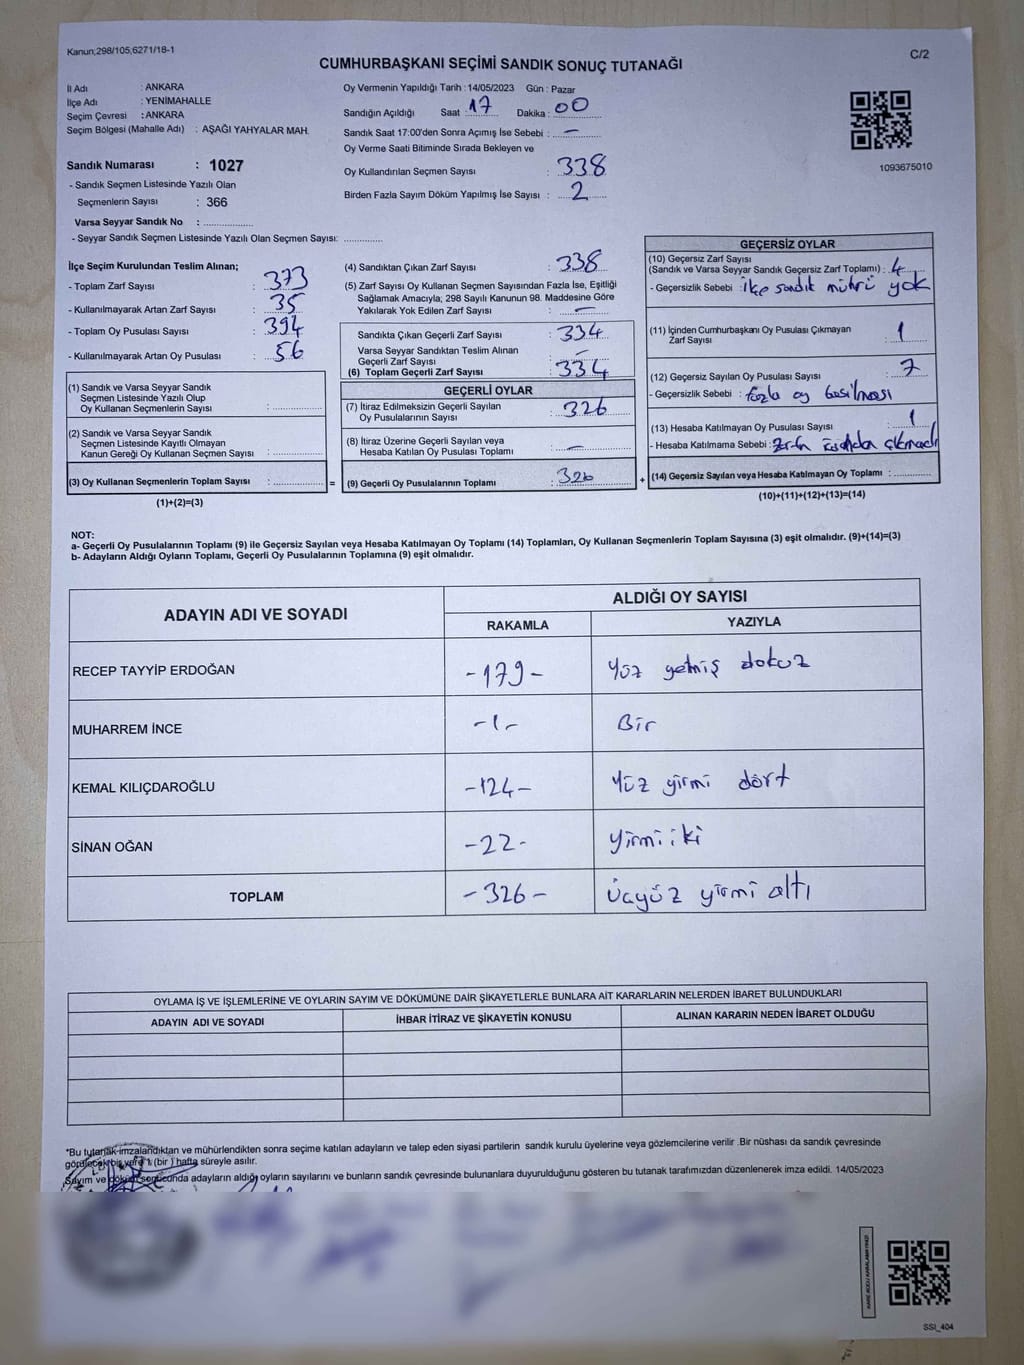 Kanun;298/105,6271/18-1
C/2
CUMHURBAŞKANI SEÇİMİ SANDIK SONUÇ TUTANAĞI
İl Adı : ANKARA
İlçe Adı : YENİMAHALLE
Seçim Çevresi : ANKARA
Seçim Bölgesi (Mahalle Adı) : AŞAĞI YAHYALAR MAH.
Sandık Numarası : 1027
- Sandık Seçmen Listesinde Yazılı Olan
Seçmenlerin Sayısı : 366
Varsa Seyyar Sandık No :
- Seyyar Sandık Seçmen Listesinde Yazılı Olan Seçmen Sayısı:
Oy Vermenin Yapıldığı Tarih : 14/05/2023 Gün : Pazar
Sandığın Açıldığı Saat 17 Dakika : 00
Sandık Saat 17:00'den Sonra Açımış İse Sebebi : —
Oy Verme Saati Bitiminde Sırada Bekleyen ve
Oy Kullandırılan Seçmen Sayısı : 338
Birden Fazla Sayım Döküm Yapılmış İse Sayısı : 2
1093675010
İlçe Seçim Kurulundan Teslim Alınan;
- Toplam Zarf Sayısı : 373
- Kullanılmayarak Artan Zarf Sayısı : 35
- Toplam Oy Pusulası Sayısı : 394
- Kullanılmayarak Artan Oy Pusulası : 56
(1) Sandık ve Varsa Seyyar Sandık
Seçmen Listesinde Yazılı Olup
Oy Kullanan Seçmenlerin Sayısı :
(2) Sandık ve Varsa Seyyar Sandık
Seçmen Listesinde Kayıtlı Olmayan
Kanun Gereği Oy Kullanan Seçmen Sayısı :
(3) Oy Kullanan Seçmenlerin Toplam Sayısı : =
(1)+(2)=(3)
(4) Sandıktan Çıkan Zarf Sayısı : 338
(5) Zarf Sayısı Oy Kullanan Seçmen Sayısından Fazla İse, Eşitliği
Sağlamak Amacıyla; 298 Sayılı Kanunun 98. Maddesine Göre
Yakılarak Yok Edilen Zarf Sayısı : —
Sandıkta Çıkan Geçerli Zarf Sayısı : 334
Varsa Seyyar Sandıktan Teslim Alınan
Geçerli Zarf Sayısı : —
(6) Toplam Geçerli Zarf Sayısı : 334
GEÇERLİ OYLAR
(7) İtiraz Edilmeksizin Geçerli Sayılan
Oy Pusulalarının Sayısı : 326
(8) İtiraz Üzerine Geçerli Sayılan veya
Hesaba Katılan Oy Pusulası Toplamı : —
(9) Geçerli Oy Pusulalarının Toplamı : 326 +
GEÇERSİZ OYLAR
(10) Geçersiz Zarf Sayısı
(Sandık ve Varsa Seyyar Sandık Geçersiz Zarf Toplamı) : 4
- Geçersizlik Sebebi : ilçe sandık mührü yok
(11) İçinden Cumhurbaşkanı Oy Pusulası Çıkmayan
Zarf Sayısı : 1
(12) Geçersiz Sayılan Oy Pusulası Sayısı : 7
- Geçersizlik Sebebi : fazla oy basılması
(13) Hesaba Katılmayan Oy Pusulası Sayısı : 1
- Hesaba Katılmama Sebebi :
(14) Geçersiz Sayılan veya Hesaba Katılmayan Oy Toplamı :
(10)+(11)+(12)+(13)=(14)
NOT:
a- Geçerli Oy Pusulalarının Toplamı (9) ile Geçersiz Sayılan veya Hesaba Katılmayan Oy Toplamı (14) Toplamları, Oy Kullanan Seçmenlerin Toplam Sayısına (3) eşit olmalıdır. (9)+(14)=(3)
b- Adayların Aldığı Oyların Toplamı, Geçerli Oy Pusulalarının Toplamına (9) eşit olmalıdır.
ADAYIN ADI VE SOYADI
ALDIĞI OY SAYISI
RAKAMLA YAZIYLA
RECEP TAYYİP ERDOĞAN -179- Yüz yetmiş dokuz
MUHARREM İNCE -1- Bir
KEMAL KILIÇDAROĞLU -124- Yüz yirmi dört
SİNAN OĞAN -22- Yirmi iki
TOPLAM -326- Üçyüz yirmi altı
OYLAMA İŞ VE İŞLEMLERİNE VE OYLARIN SAYIM VE DÖKÜMÜNE DAİR ŞİKAYETLERLE BUNLARA AİT KARARLARIN NELERDEN İBARET BULUNDUKLARI
ADAYIN ADI VE SOYADI İHBAR İTİRAZ VE ŞİKAYETİN KONUSU ALINAN KARARIN NEDEN İBARET OLDUĞU
*Bu tutanak imzalandıktan ve mühürlendikten sonra seçime katılan adayların ve talep eden siyasi partilerin sandık kurulu üyelerine veya gözlemcilerine verilir .Bir nüshası da sandık çevresinde
görülecek bir yere 1 (bir ) hafta süreyle asılır.
Sayım ve döküm sonucunda adayların aldığı oyların sayılarını ve bunların sandık çevresinde bulunanlara duyurulduğunu gösteren bu tutanak tarafımızdan düzenlenerek imza edildi. 14/05/2023
SSI_404